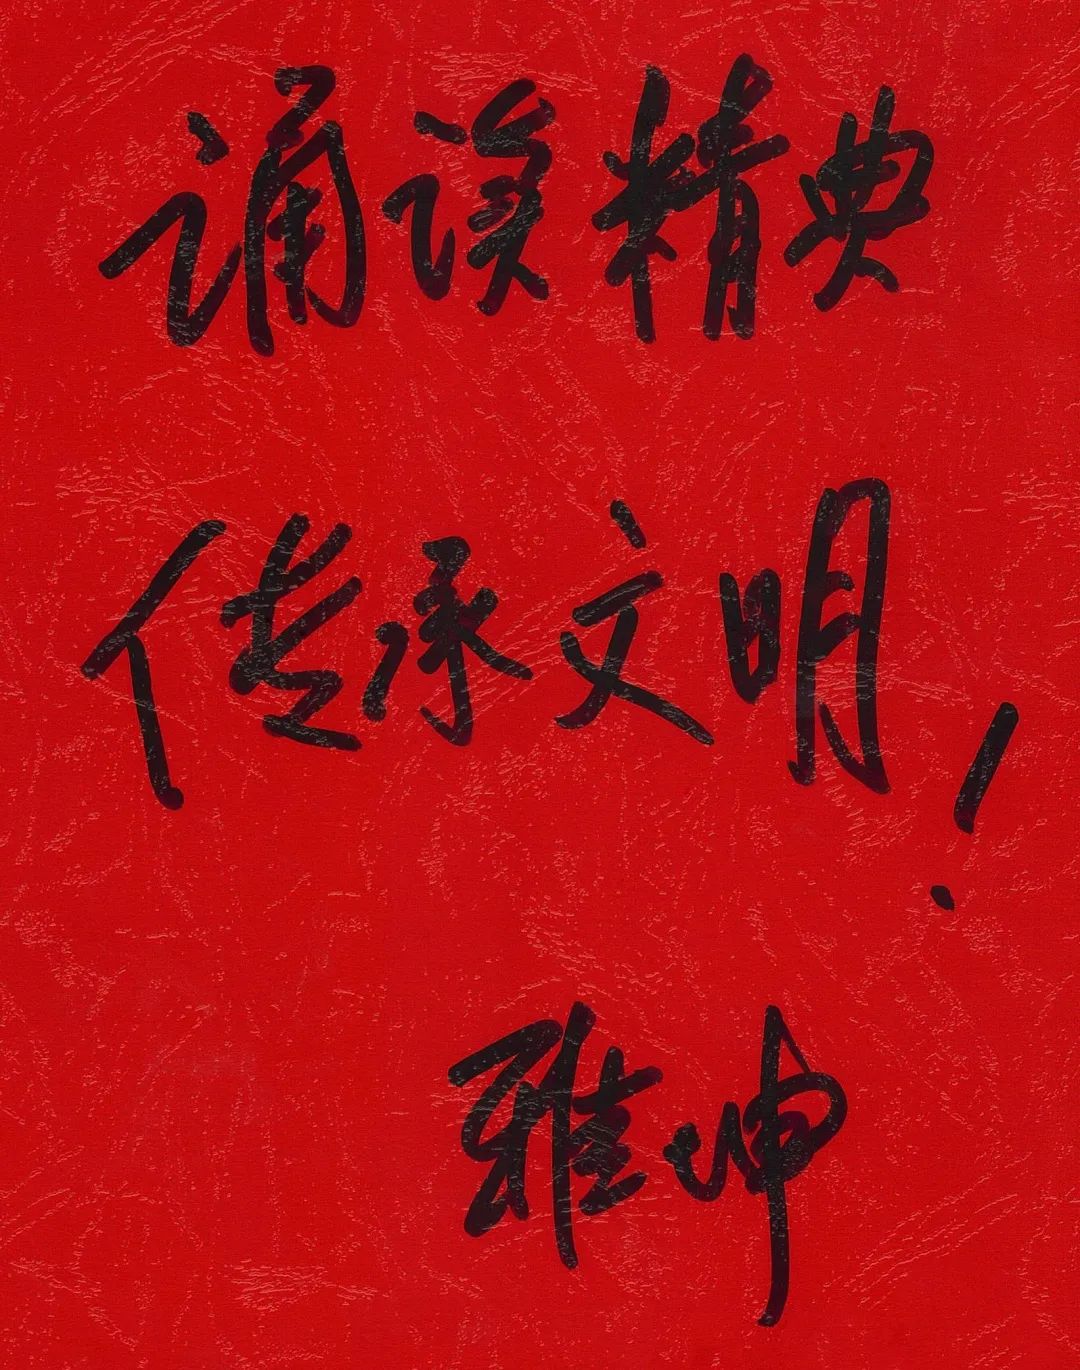 诵读精典
传承文明！
雅坤